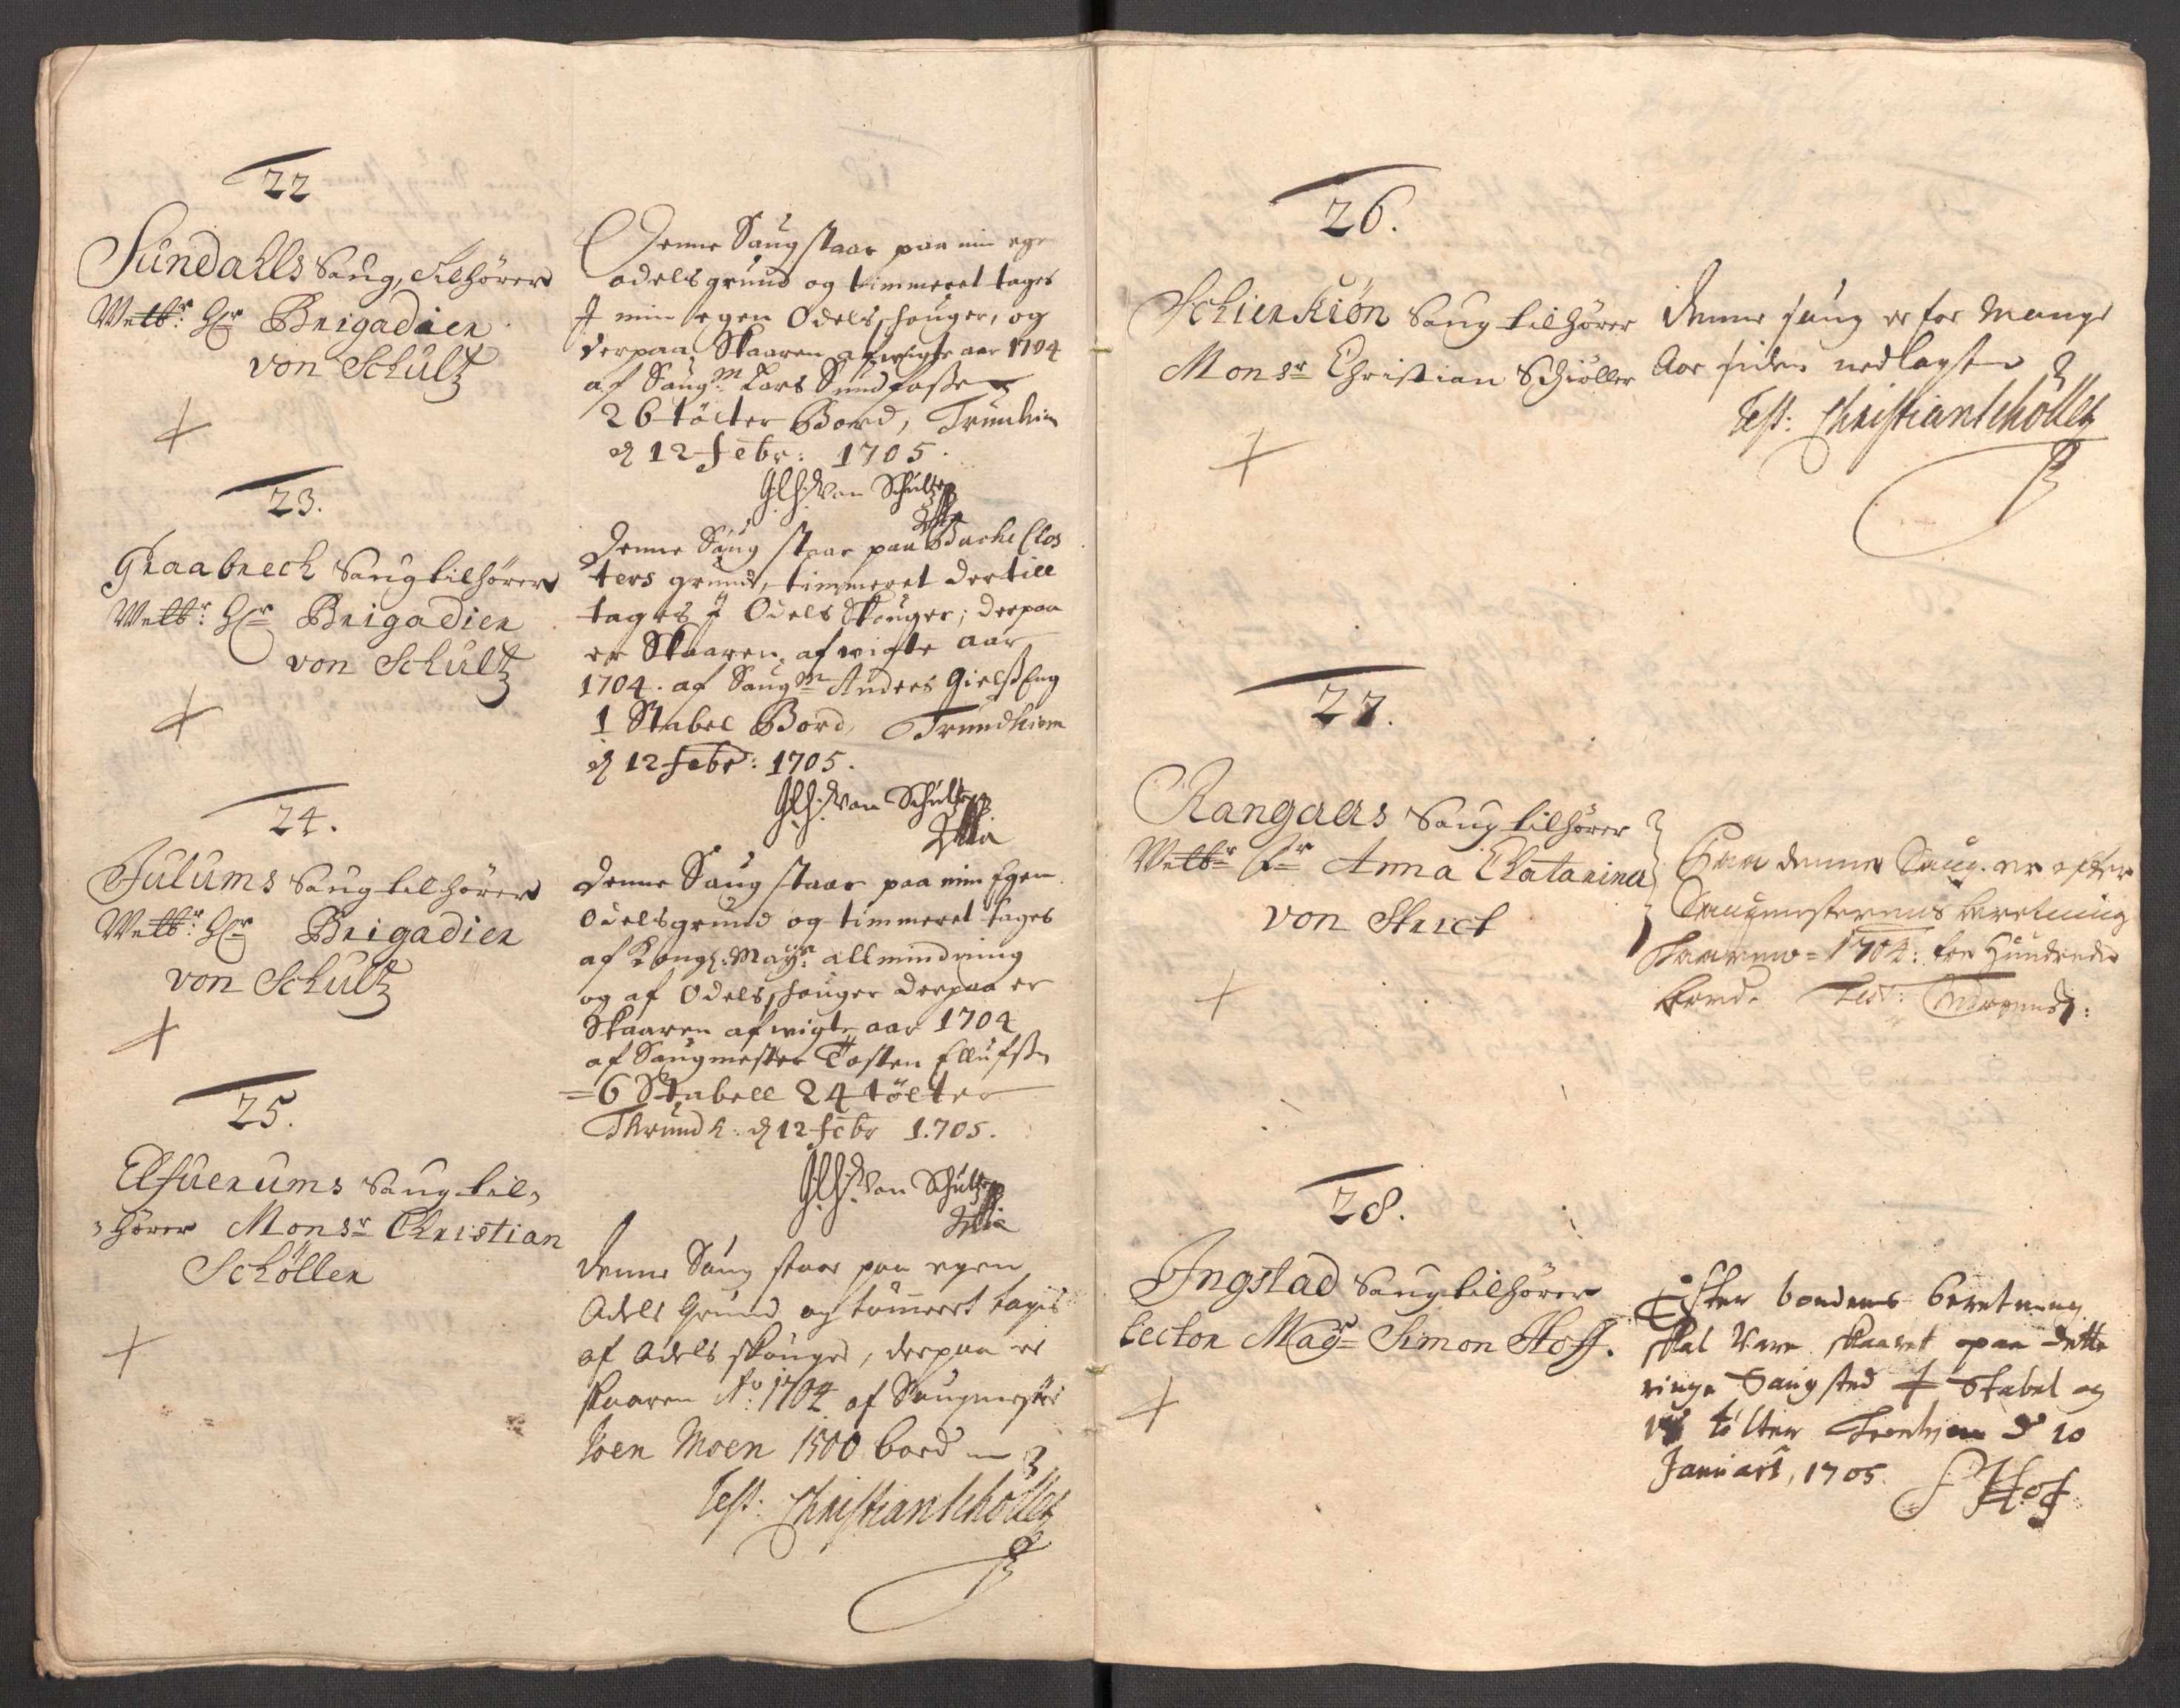 22
Sundahls Saug, tilhörer
Welb:r Hr Brigadier
von Schultz
Denne Saug staar paa min egen
odelsgrund og timmeret tages
J min egen Odels skouger, og
derpaa Skaaren afwigte aar 1704
af Saugm Lars Sundfaßen
26 tölter Bord, Trundhiem
d 12 febr: 1705.
von Schultz
23.
Graabrech Saug tilhörer
Welb:r Hr Brigadier
von Schultz
Denne Saug staar paa Backe Clos
ters grund, timmeret dertill
tages J Odels Skouger; derpaa
er Skaaren afwigte aar
1704. af Saugm Anders Gielß Eng
1 Stabel Bord, Trundhiem
d 12 febr: 1705.
von Schultz
24.
Julums Saug tilhörer
Welb:r Hr Brigadier
von Schultz
Denne Saug staar paa min Egen
Odelsgrund og timmeret tages
af Kongl: Mayts: allmindning
og af Odels skouger derpaa er
Skaaren afwigte aar 1704
af Saugmester Tosten Ellufßn
= 6 Stabell 24 tölter
Thrundh: d 12 febr 1705.
von Schultz
25.
Elfuerums Saug til,
,hörer Monsr Christian
Schöller
Denne Saug staar paa egen
Odels Grund og tömeret tages
af Odels skouger, derpaa er
skaaren Ao: 1704 af Saugmester
Joen Moen 1500 bord
Test: Christian Schöller
26.
Schierkiön Saug tilhörer
Monsr Christian Schiöller
Denne saug er for mange
Aar siden nedlagt
Test: Christian Schöller
27.
Rangaas Saug tilhörer
Welbr Fr Anna Chatarina
von Strict
Paa denne Saug er efter
Saugmesterens beretning
skaaren = 1704: for Hundrede
bord. Test:
28.
Ingstad Saug tilhörer
Lector Magr Simon Hoff.
Efter bondens beretning
skal være skaaret paa dette
ringe Saugsted J Stabel og
tölter Tronhiem d 10
Januari, 1705.
S Hof